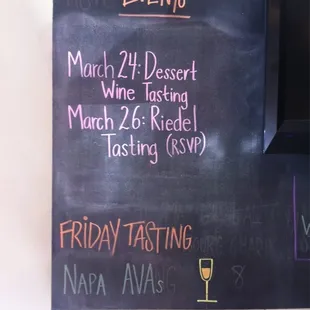 EVENTS
March 24: Dessert
Wine Tasting
March 26: Riedel
Tasting (RSVP)
FRIDAY TASTING
NAPA AVAs
8